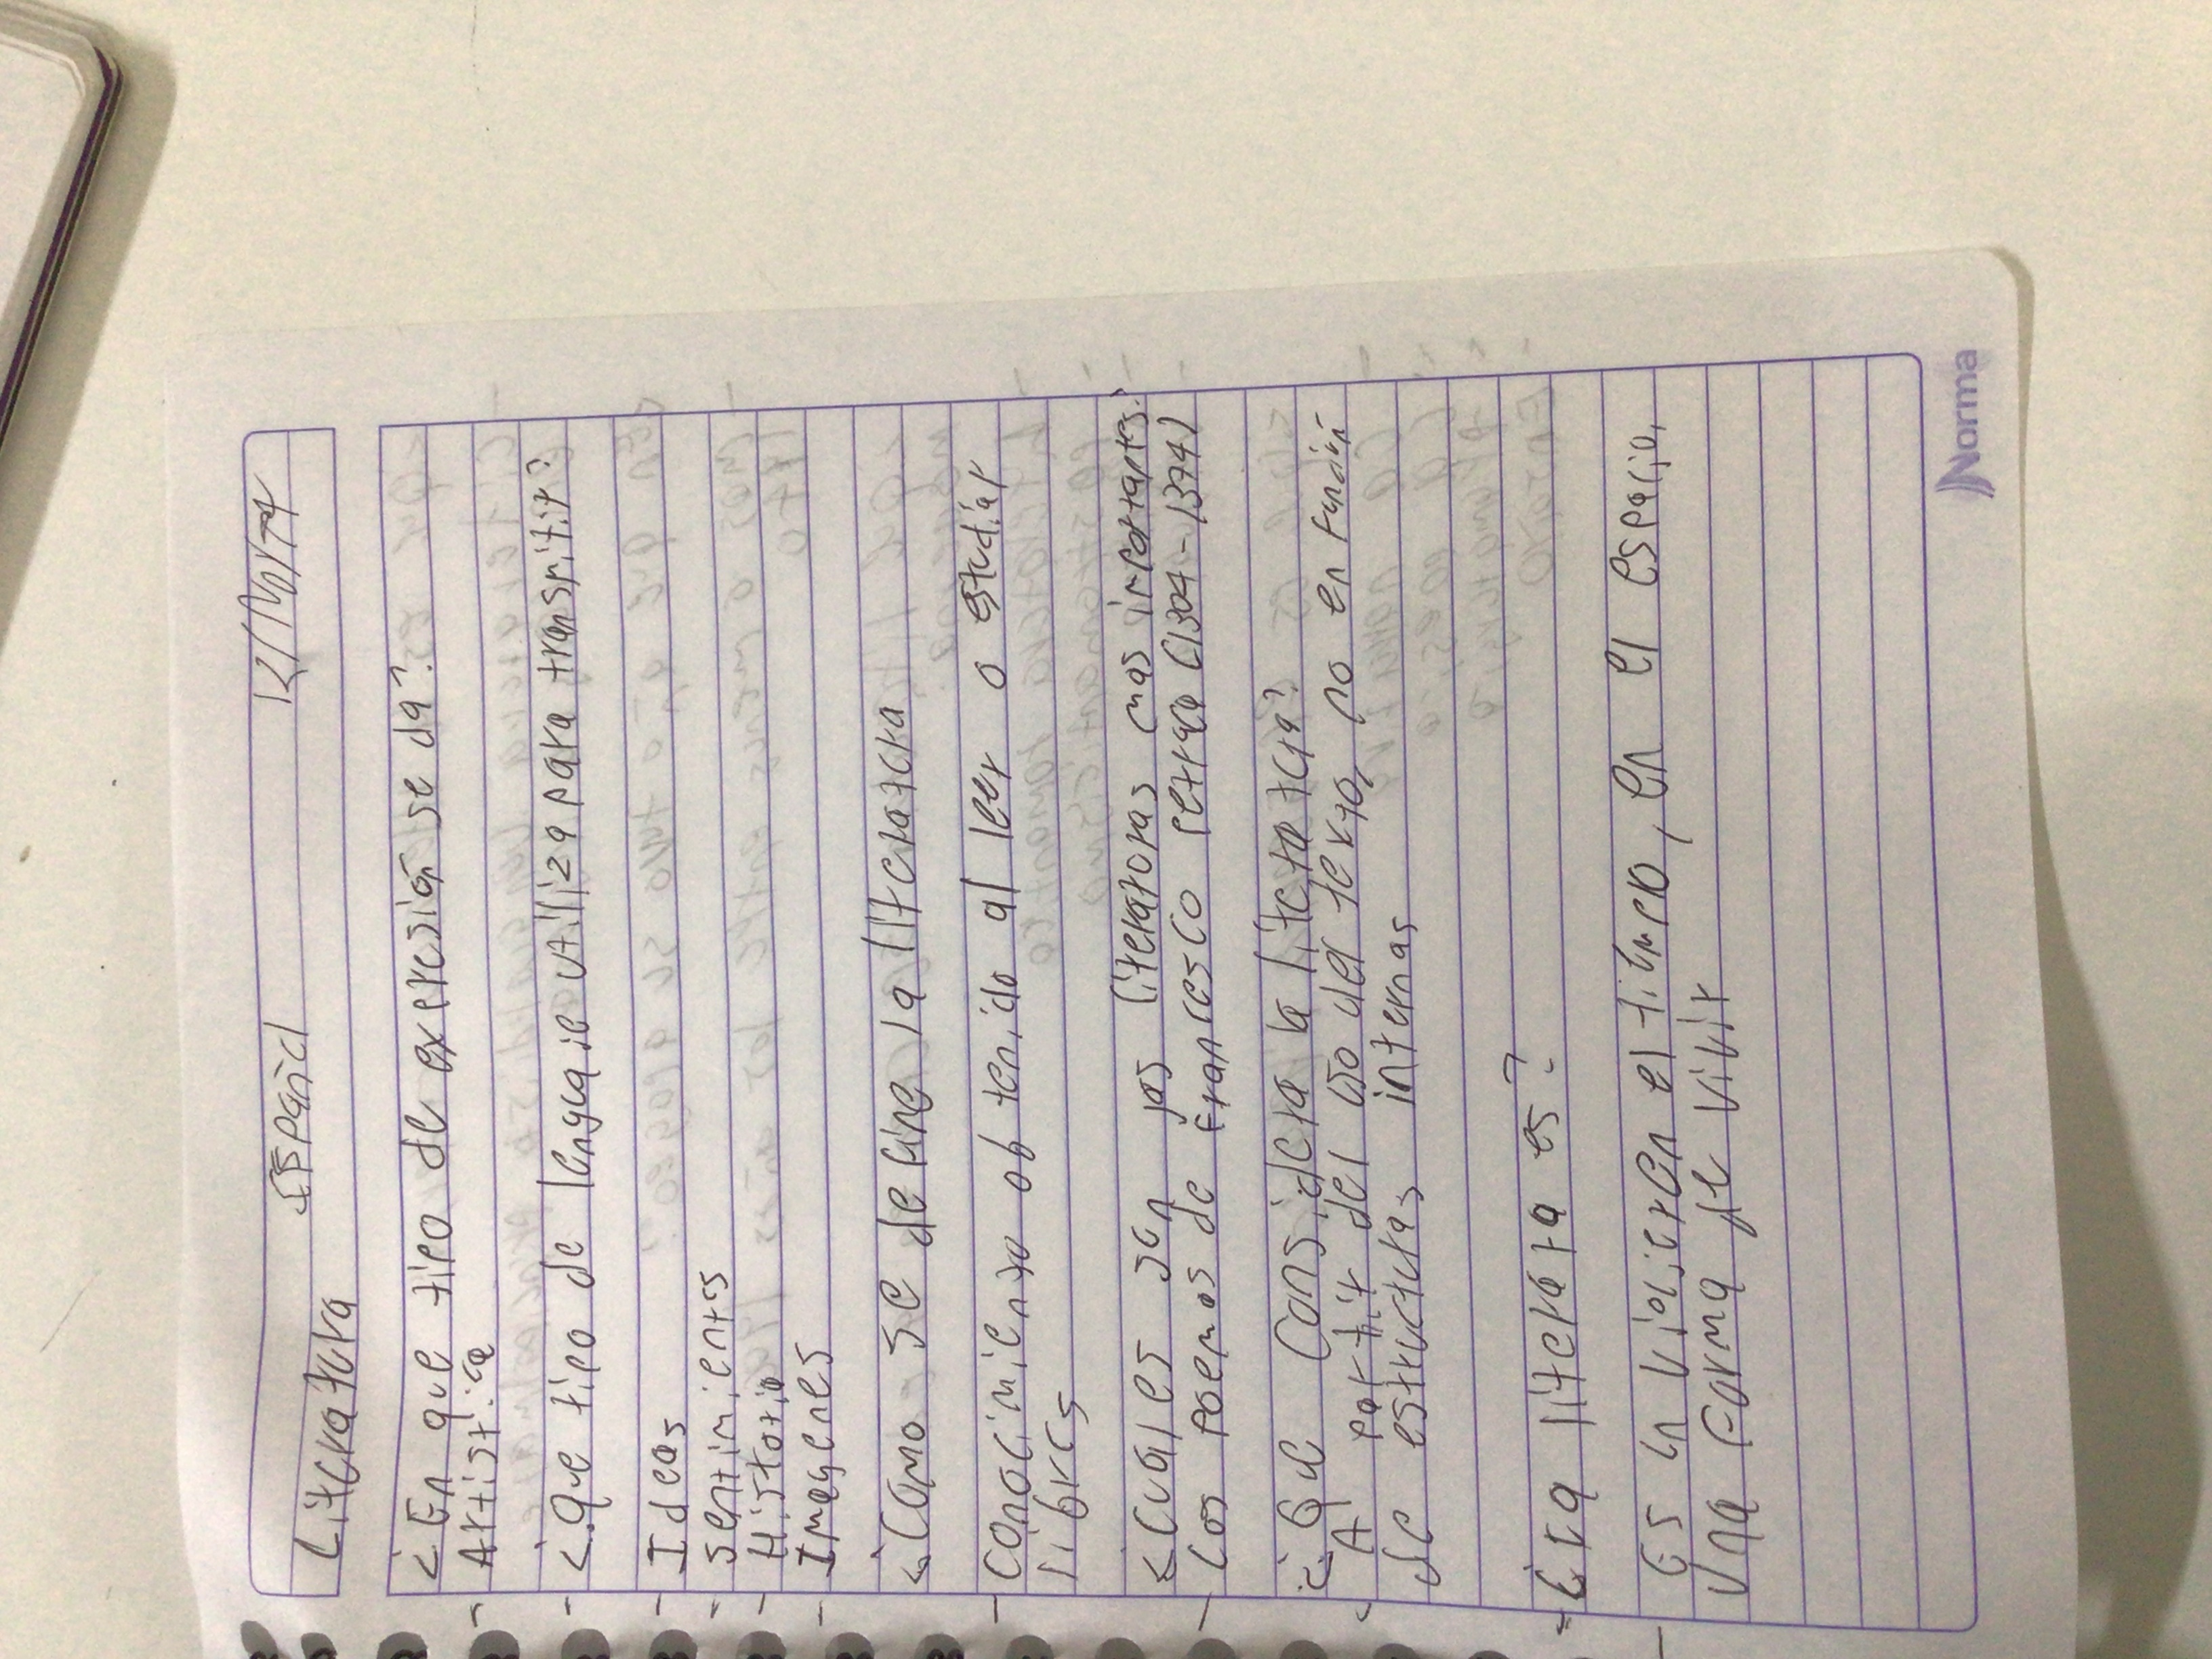 Español
Literatura
¿En que tipo de expresión se da?
- Artistica
- ¿que tipo de lenguaje utiliza para transmitir?
- Ideas
- sentimientos
- Historia
- Imagenes
¿Como se define la literatura
- Conocimiento obtenido al leer o estudiar
libros
¿Cuales son las literatoras mas importantes?
- Los Poemas de francesco Petraca (1304-1374)
¿Que Considera la literatura?
- A partir del uso del texto, no en función
de estructuras internas
- literata es?
- Es un viaje en el tiempo, en el espacio,
Una Forma de vivir
Norma